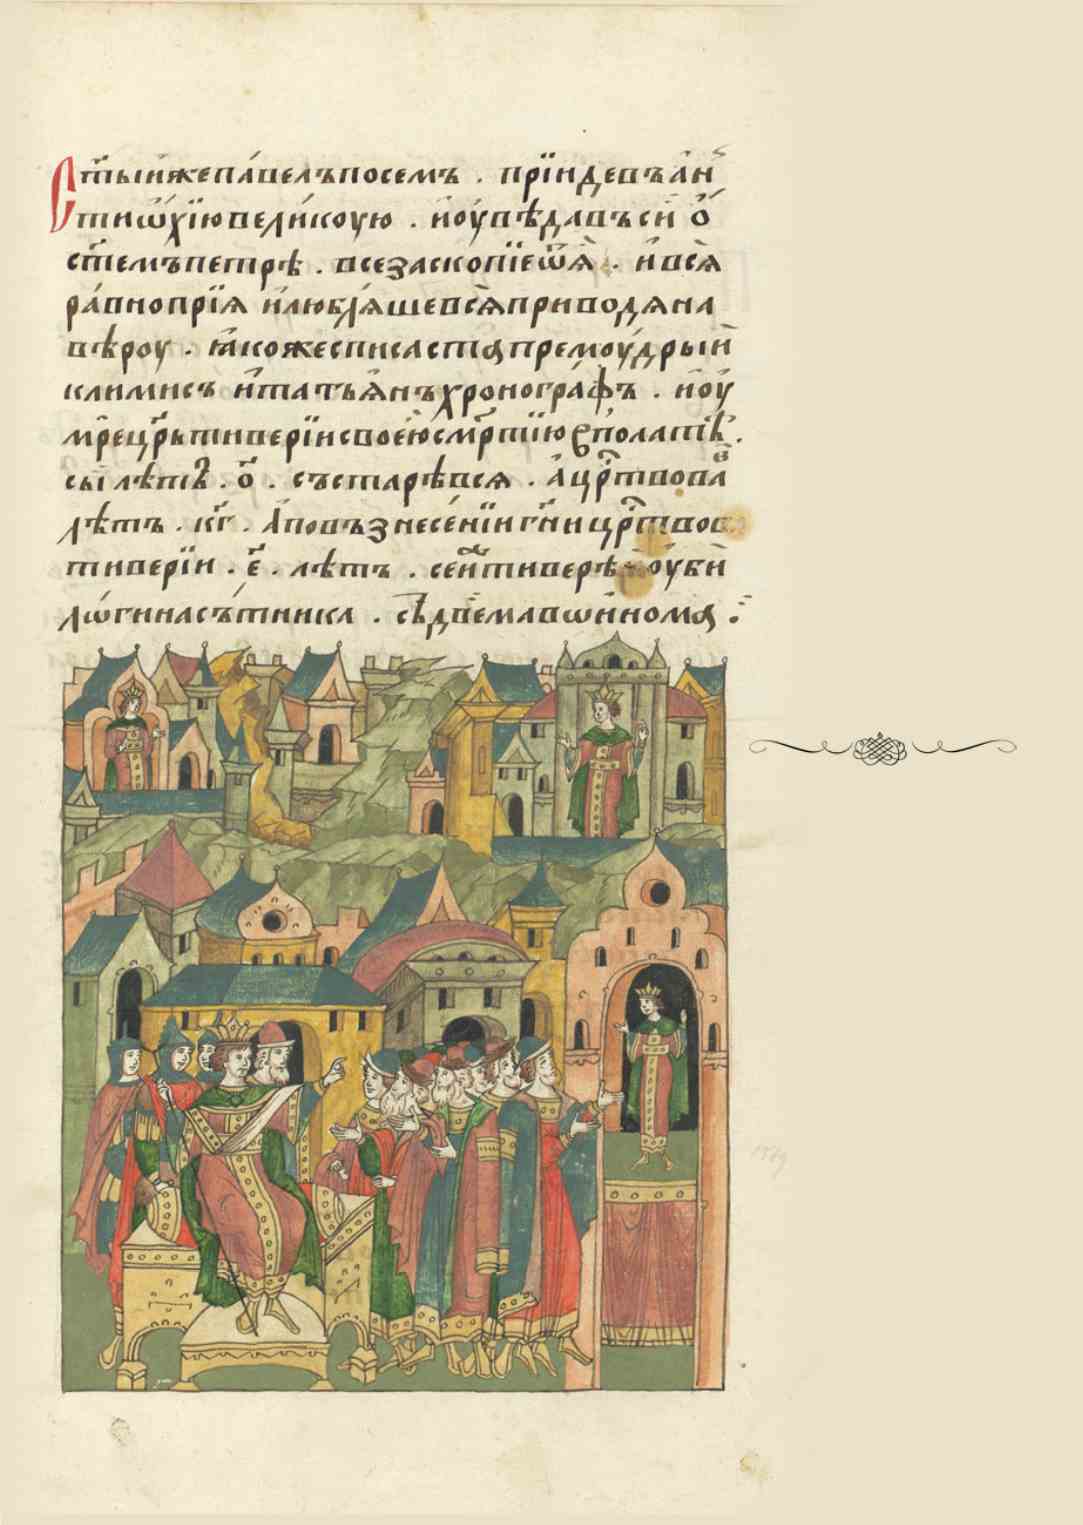 Ст҃ыи́жепа́велъпосемъ . прїидевъа́н
тиѡ́хїювели́коую . и҆оувѣ́давъси́ ѻ҆
ст҃ѣмъпетрѣ . всезаскопїеѿѧ́ . и҆всѧ̀
ра́внопрїѧ и҆люблѧ́шевсѧ̀приводѧна
вѣроу . ꙗ҆кожесписастаꙗпремоу́дрыи҆
климисъ и҆татьѧ́нъхроногра́фъ . и҆оу
мре́цр҃ьтивери́исвое́юсмр҃тїю вполатѣ .
сы́ лѣтъ . о҃ . състарѣвсѧ . а҆цр҃твова
лѣтъ . кг҃ . а҆повъзнесе́нїигн҃ицр҃твова
тиве́рїи . е҃ . лѣтъ . се́итивере́ оуби́
лѡ́гинасо́тника . съдвѣ́мавѡ́инома :